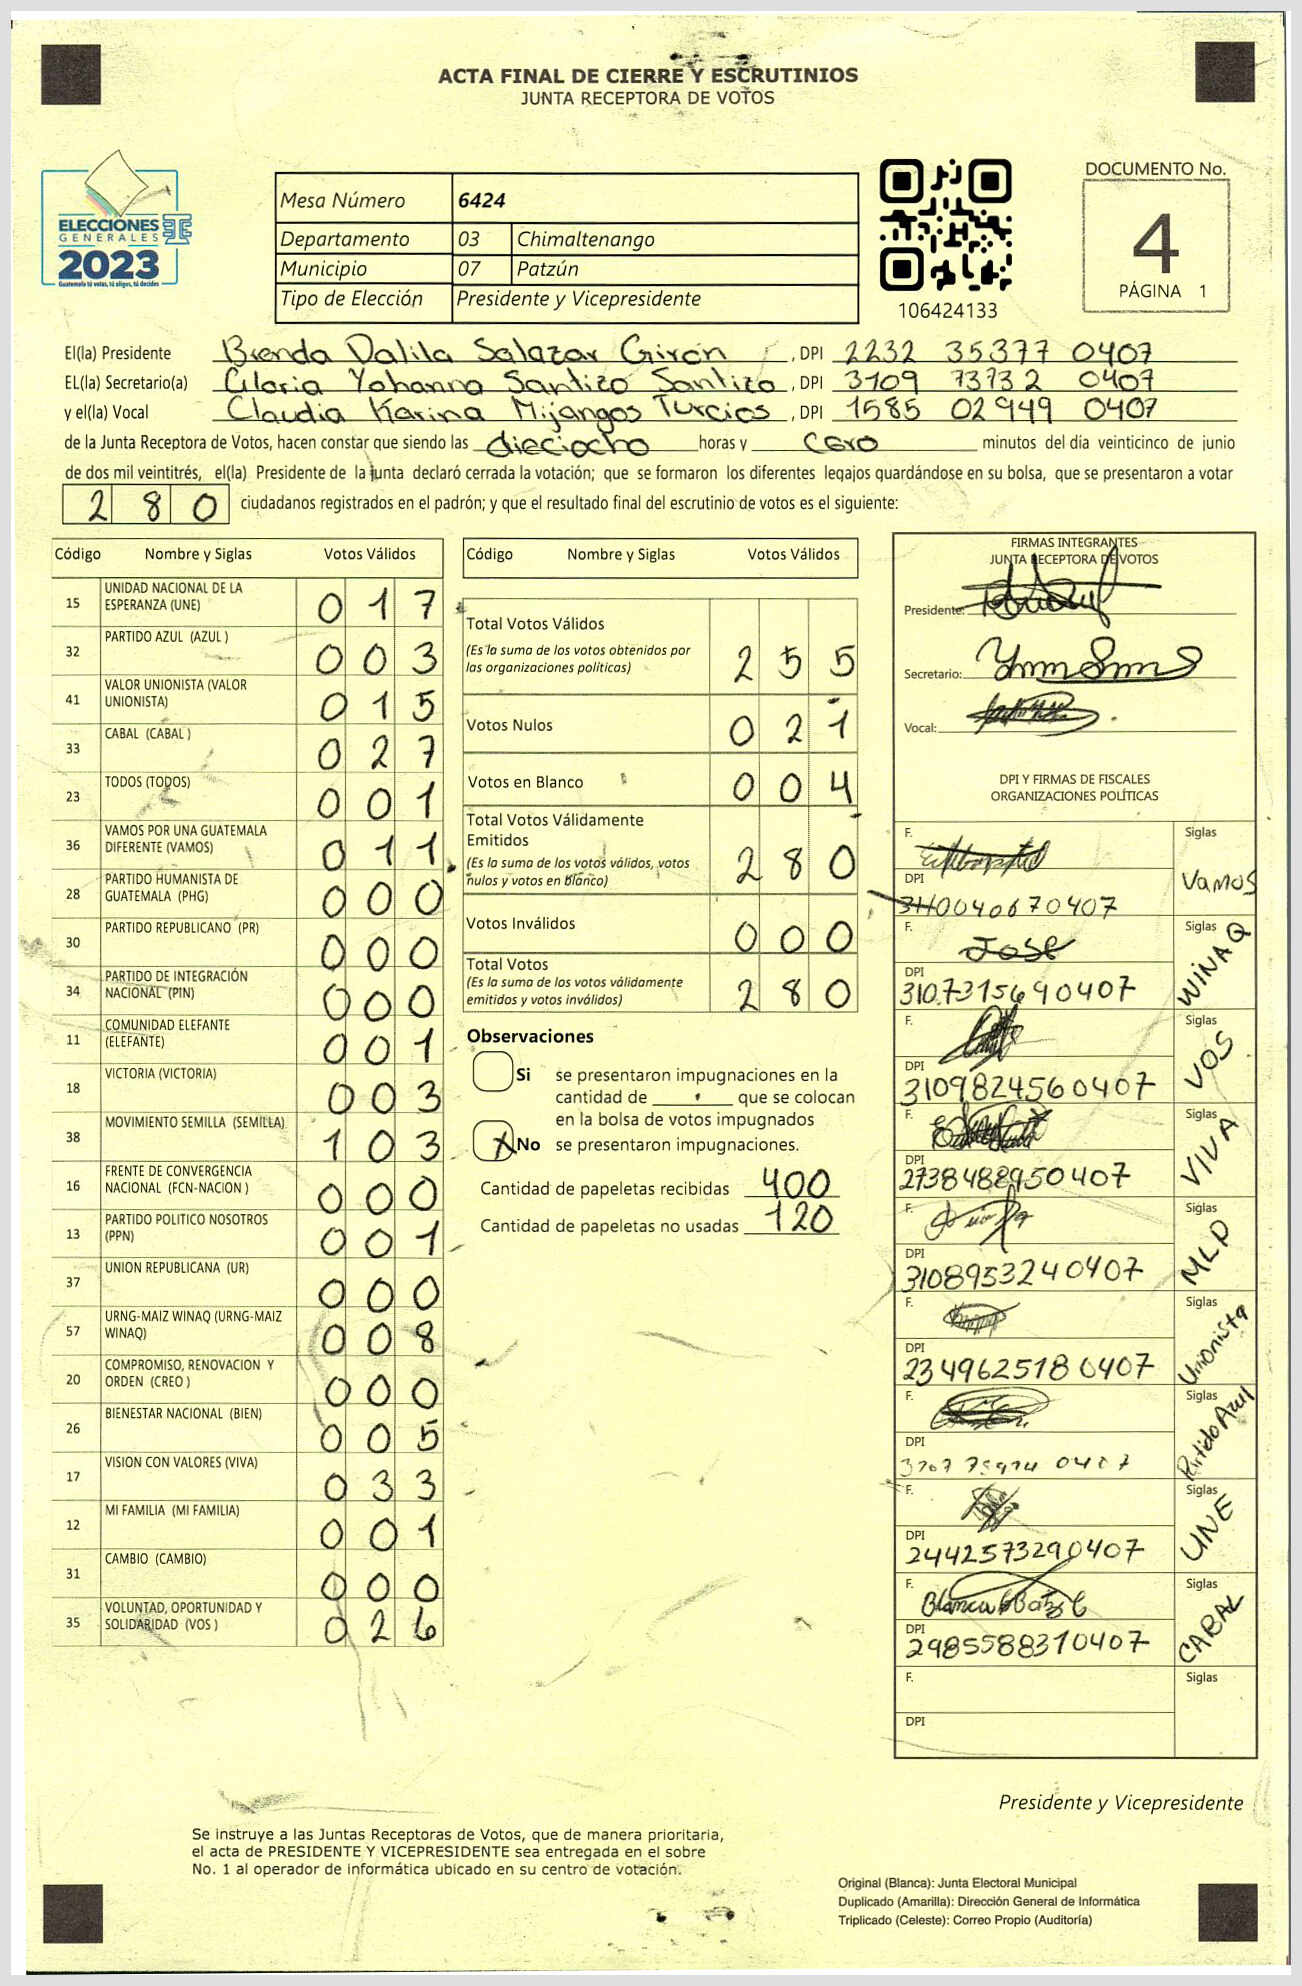 ACTA FINAL DE CIERRE Y ESCRUTINIOS
JUNTA RECEPTORA DE VOTOS
ELECCIONES
GENERALES
2023
Guatemala tú votas, tú eliges, tú decides
Mesa Número 6424
Departamento 03 Chimaltenango
Municipio 07 Patzún
Tipo de Elección Presidente y Vicepresidente
106424133
DOCUMENTO No.
4
PÁGINA 1
El(la) Presidente Brenda Dalila Salazar Girón, DPI 2232 35377 0407
EL(la) Secretario(a) Gloria Yohanna Santizo Santizo, DPI 3109 73732 0407
y el(la) Vocal Claudia Karina Mijangos Turcios, DPI 1585 02949 0407
de la Junta Receptora de Votos, hacen constar que siendo las dieciocho horas y cero minutos del día veinticinco de junio
de dos mil veintitrés, el(la) Presidente de la junta declaró cerrada la votación; que se formaron los diferentes legajos guardándose en su bolsa, que se presentaron a votar
280 ciudadanos registrados en el padrón; y que el resultado final del escrutinio de votos es el siguiente:
Código Nombre y Siglas Votos Válidos
15 UNIDAD NACIONAL DE LA ESPERANZA (UNE) 017
32 PARTIDO AZUL (AZUL ) 003
41 VALOR UNIONISTA (VALOR UNIONISTA) 015
33 CABAL (CABAL ) 027
23 TODOS (TODOS) 001
36 VAMOS POR UNA GUATEMALA DIFERENTE (VAMOS) 011
28 PARTIDO HUMANISTA DE GUATEMALA (PHG) 000
30 PARTIDO REPUBLICANO (PR) 000
34 PARTIDO DE INTEGRACIÓN NACIONAL (PIN) 000
11 COMUNIDAD ELEFANTE (ELEFANTE) 001
18 VICTORIA (VICTORIA) 003
38 MOVIMIENTO SEMILLA (SEMILLA) 103
16 FRENTE DE CONVERGENCIA NACIONAL (FCN-NACION ) 000
13 PARTIDO POLITICO NOSOTROS (PPN) 001
37 UNION REPUBLICANA (UR) 000
57 URNG-MAIZ WINAQ (URNG-MAIZ WINAQ) 008
20 COMPROMISO, RENOVACION Y ORDEN (CREO ) 000
26 BIENESTAR NACIONAL (BIEN) 005
17 VISION CON VALORES (VIVA) 033
12 MI FAMILIA (MI FAMILIA) 001
31 CAMBIO (CAMBIO) 000
35 VOLUNTAD, OPORTUNIDAD Y SOLIDARIDAD (VOS ) 026
Código Nombre y Siglas Votos Válidos
Total Votos Válidos
(Es la suma de los votos obtenidos por
las organizaciones políticas) 255
Votos Nulos 021
Votos en Blanco 004
Total Votos Válidamente
Emitidos
(Es la suma de los votos válidos, votos
nulos y votos en blanco) 280
Votos Inválidos 000
Total Votos
(Es la suma de los votos válidamente
emitidos y votos inválidos) 280
Observaciones
Si se presentaron impugnaciones en la
cantidad de ______ que se colocan
en la bolsa de votos impugnados
X No se presentaron impugnaciones.
Cantidad de papeletas recibidas 400
Cantidad de papeletas no usadas 120
FIRMAS INTEGRANTES
JUNTA RECEPTORA DE VOTOS
Presidente:
Secretario:
Vocal:
DPI Y FIRMAS DE FISCALES
ORGANIZACIONES POLÍTICAS
F. Siglas Vamos
DPI 3110040670407
F. José Siglas WINAQ
DPI 3107315690407
F. Siglas VOS
DPI 3109824560407
F. Siglas VIVA
DPI 2738488950407
F. Siglas MLD
DPI 3108953240407
F. Siglas Unionista
DPI 2349625180407
F. Siglas Partido Azul
DPI
F. Siglas UNE
DPI 2442573290407
F. Siglas CABAL
DPI 2985588310407
F. Siglas
DPI
Presidente y Vicepresidente
Se instruye a las Juntas Receptoras de Votos, que de manera prioritaria,
el acta de PRESIDENTE Y VICEPRESIDENTE sea entregada en el sobre
No. 1 al operador de informática ubicado en su centro de votación.
Original (Blanca): Junta Electoral Municipal
Duplicado (Amarilla): Dirección General de Informática
Triplicado (Celeste): Correo Propio (Auditoría)